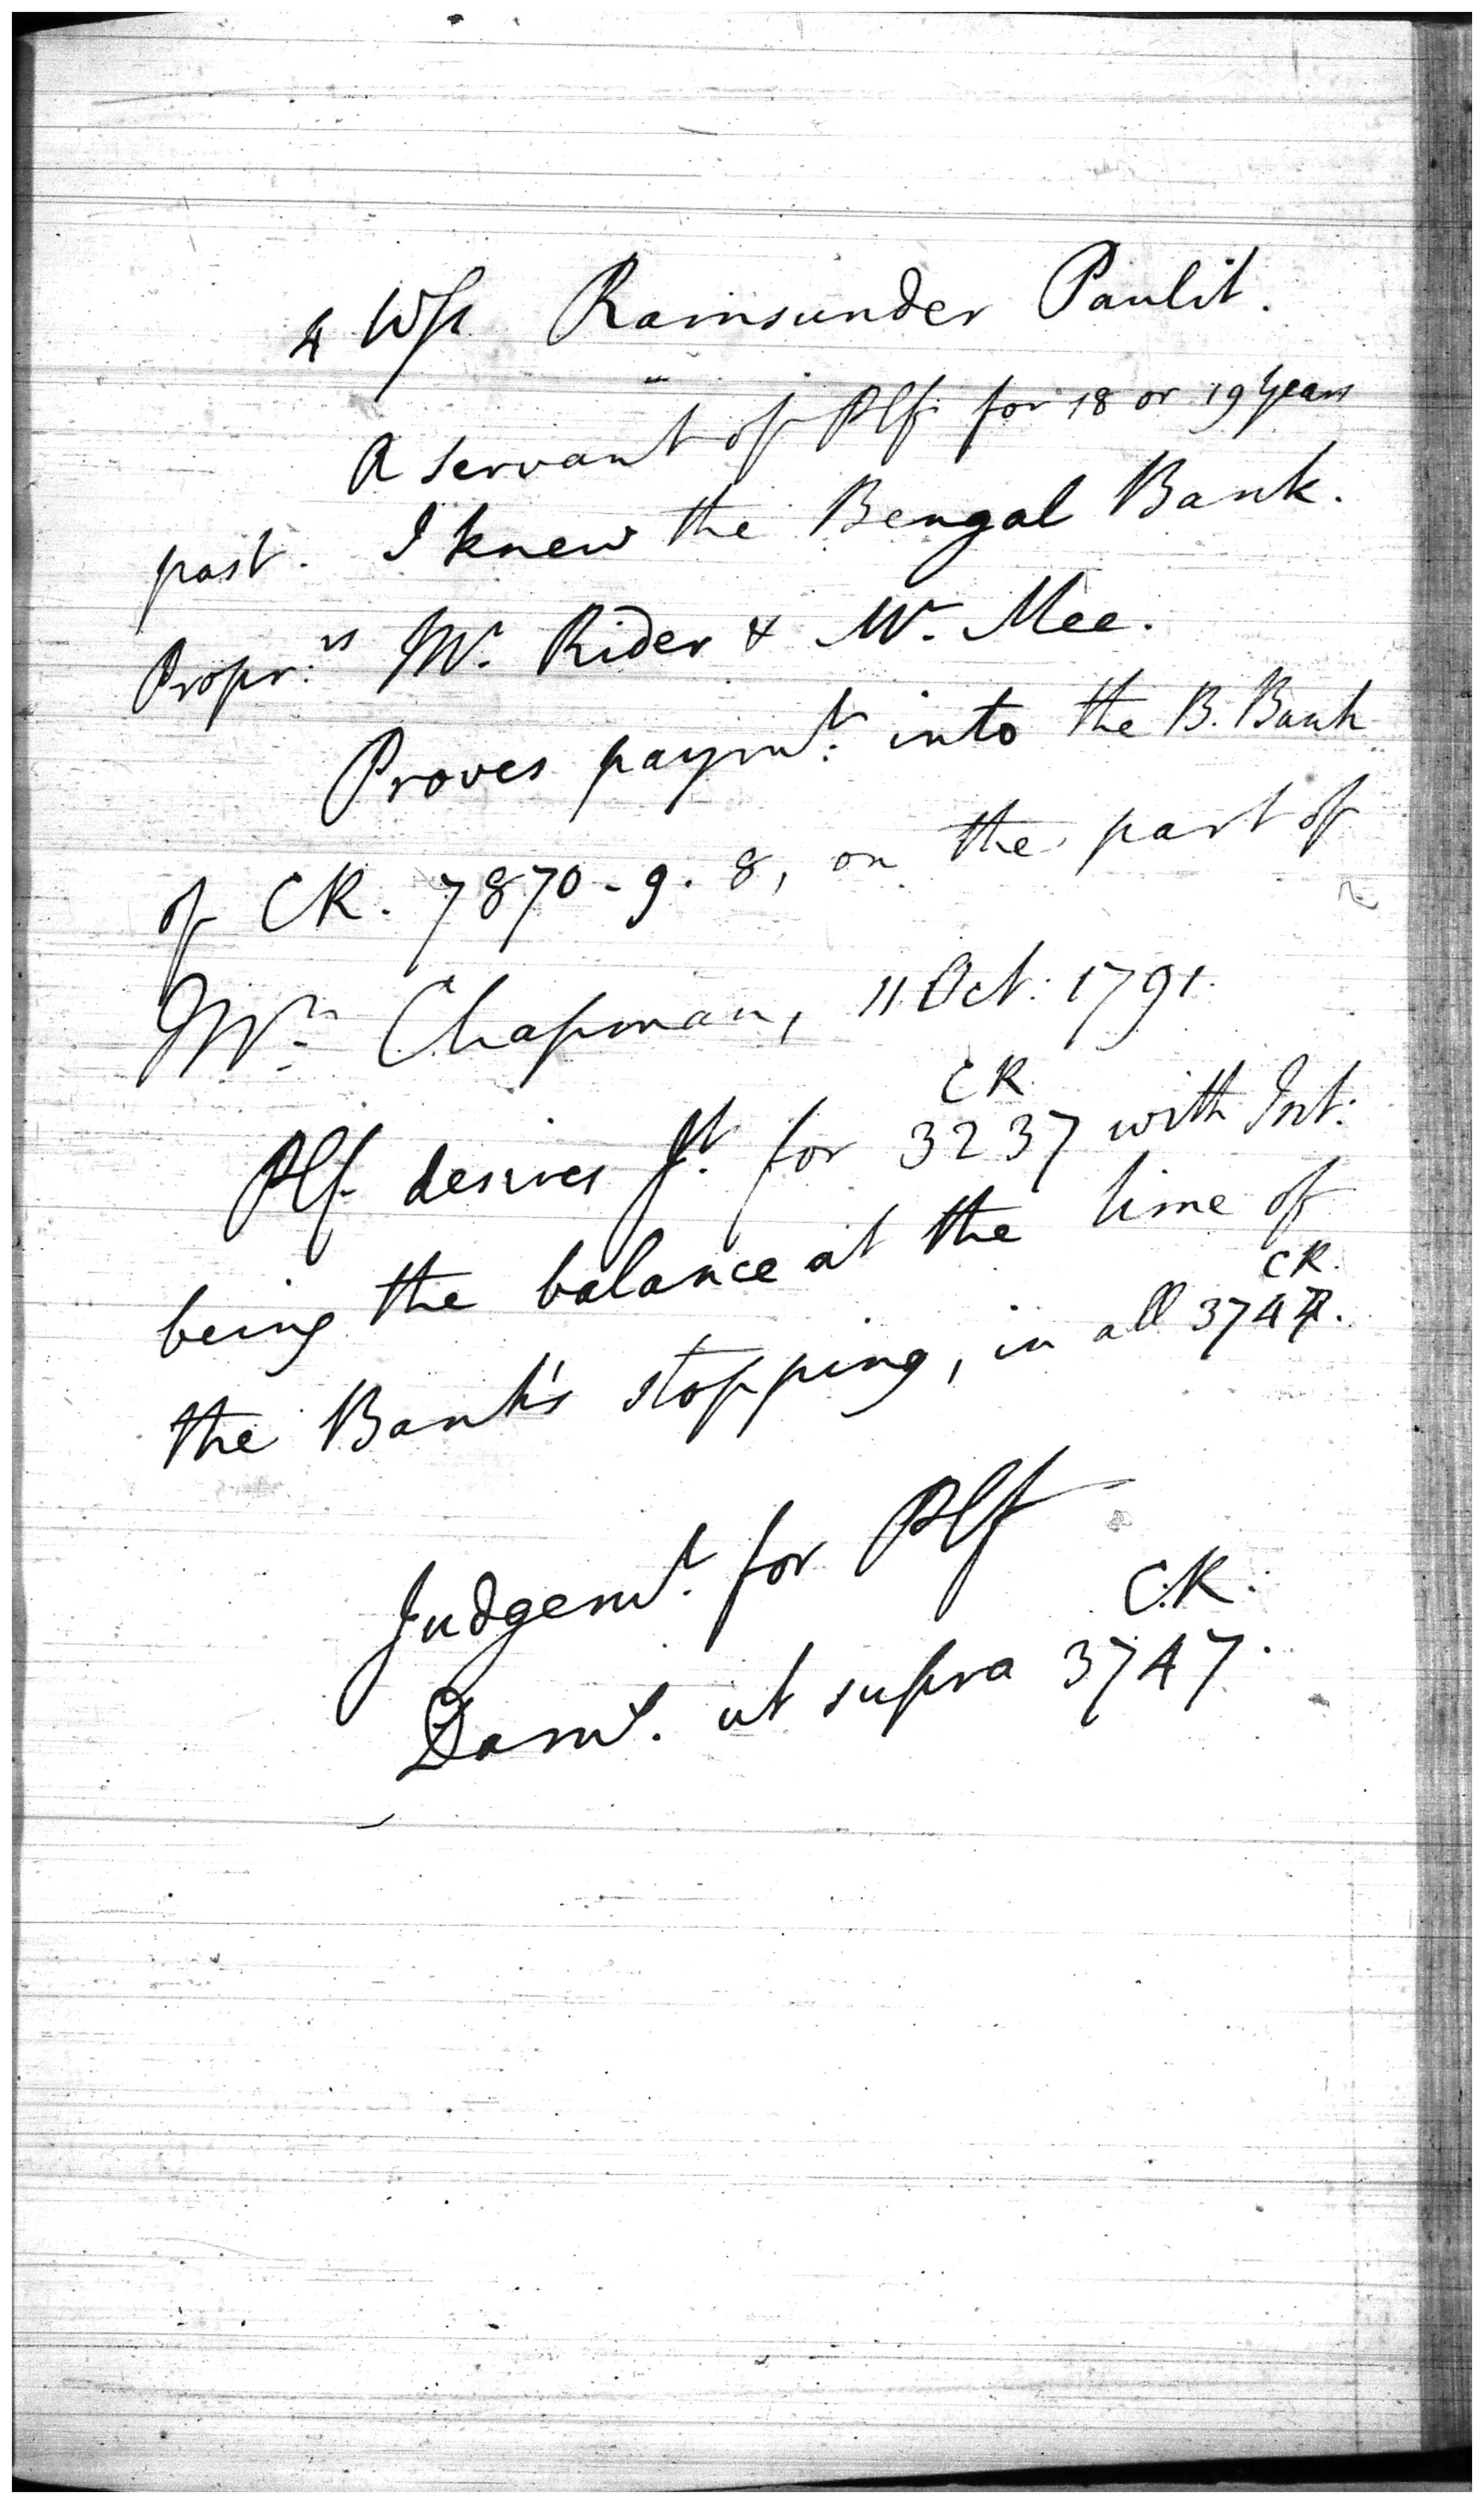 4 Wss. Ramsunder Paulit.
A servant of Plf. for 18 or 19 years
past. I knew the Bengal Bank.
Propr:rs Mr. Rider & Mr. Mee.
Proves paymt: into the B. Bank
of CR. 7870-9.8, on the part of
Mrs Chapman, 11 Oct: 1791.
CR.
Plf. desires Jt. for 3237 with Int:
being the balance at the time of
CR.
the Bank's stopping, in all 3747.
Judgemt. for Plf
C.R.
Dams. ut supra 3747.